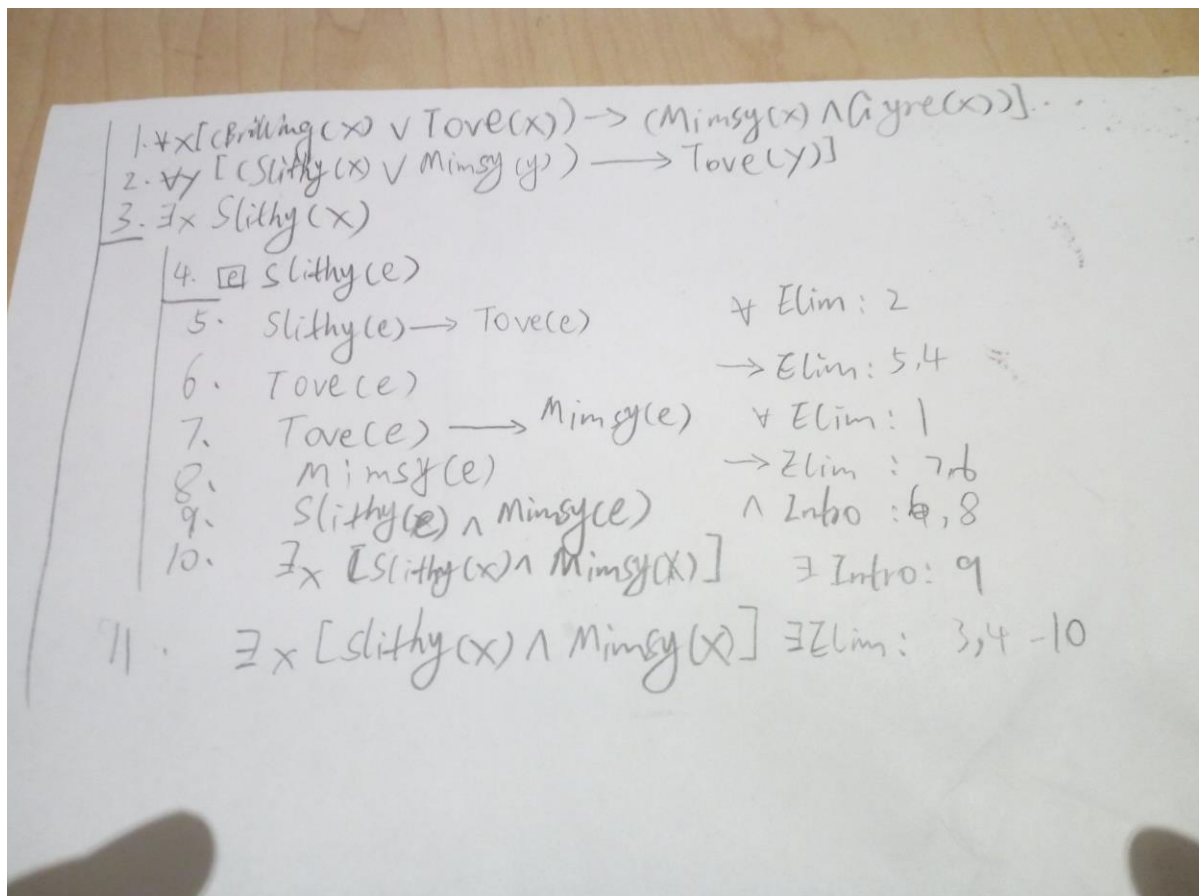 1. ∀x[(Brilling(x) ∨ Tove(x)) → (Mimsy(x) ∧ Gyre(x))]...
2. ∀y [(Slithy(x) ∨ Mimsy(y)) → Tove(y)]
3. ∃x Slithy(x)
4. [e] Slithy(e)
5. Slithy(e) → Tove(e) ∀ Elim: 2
6. Tove(e) → Elim: 5,4
7. Tove(e) → Mimsy(e) ∀ Elim: 1
8. Mimsy(e) → Elim : 7,6
9. Slithy(e) ∧ Mimsy(e) ∧ Intro : , 8
10. ∃x [Slithy(x) ∧ Mimsy(x)] ∃ Intro: 9
11. ∃x [Slithy(x) ∧ Mimsy(x)] ∃ Elim: 3,4-10